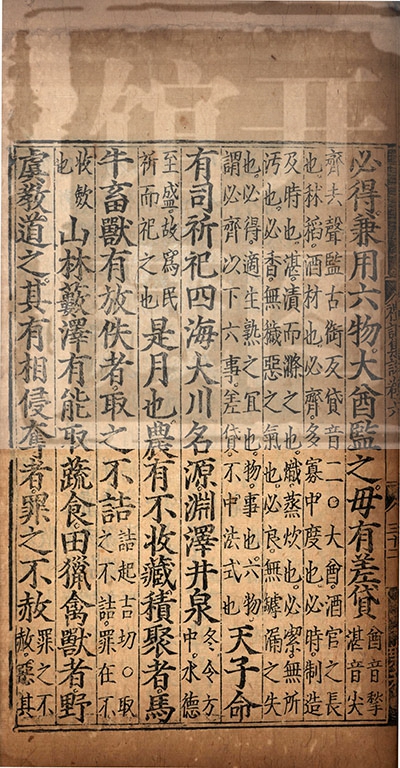 必得。兼用六物。大酋監之。毋有差貸酋音揫
湛音尖
齊去聲監古銜反貸音二。○大酋酒官之長
也。秫稻。酒材也。必齊。多寡中度也。必時。制造
及時也。湛漬而滌之也。熾蒸炊也。必潔無所
汚也。必香無穢惡之氣也。必良。無罅漏之失
也。必得。適生熟之宜也。物。事也。六物
謂必齊以下六事。差貸。不中法式也
天子命
有司祈祀四海大川名源淵澤井泉冬令方
中。水德
至盛。故爲民
祈而祀之也
是月也。農有不收藏積聚者。馬
牛畜獸有放佚者。取之不詰詰起吉切。○取
之不詰罪在不
收斂
也
山林藪澤有能取蔬食。田獵禽獸者。野
虞教道之。其有相侵奪者。罪之不赦罪之不
赦惡其